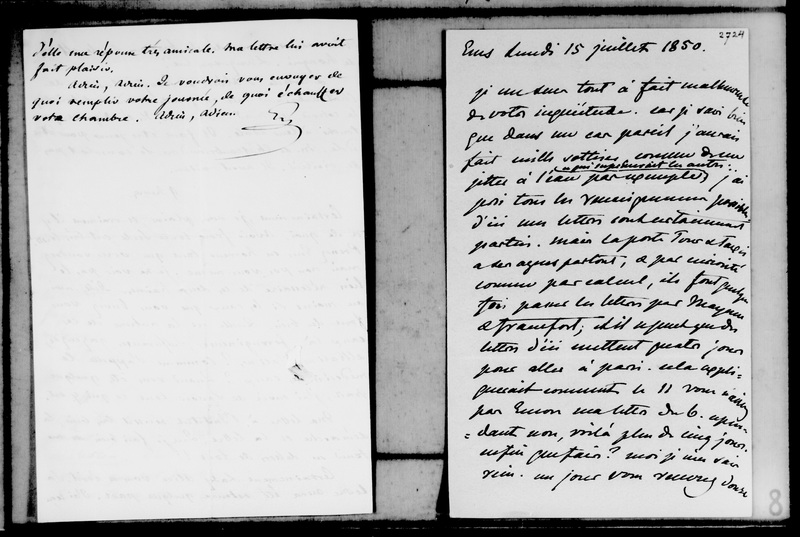 d'elle une réponse très amicale. Ma lettre lui avoit
fait plaisir.
Adieu, Adieu. Je voudrais vous envoyer de
quoi remplir votre journée, de quoi échauffer
votre chambre. Adieu, Adieu.
2724
Ems lundi 15 juillet 1850.
je me sens tout à fait malheureuse
de votre inquiétude. car je sais bien
que dans un cas pareil j'aurais
fait mille sottises comme de me
jetter à l'eau par exemple, j'ai
pris tous les renseignemens possibles
d'ici mes lettres sont certainement
parties. mais la poste Tour & Taxis
a ses agens partout, & par curiosité
comme par calcul, ils font quelque
fois passer les lettres par Mayence
& francfort, et il se peut que des
lettres d'ici mettent quatre jours
pour aller à paris. cela expli-
querait comment le 11 vous n'aviez
par encore ma lettre du 6. cepen-
dant non, voilà plus de cinq jours.
enfin que faire? moi je n'en sais
rien. un jour vous recevrez douze
8